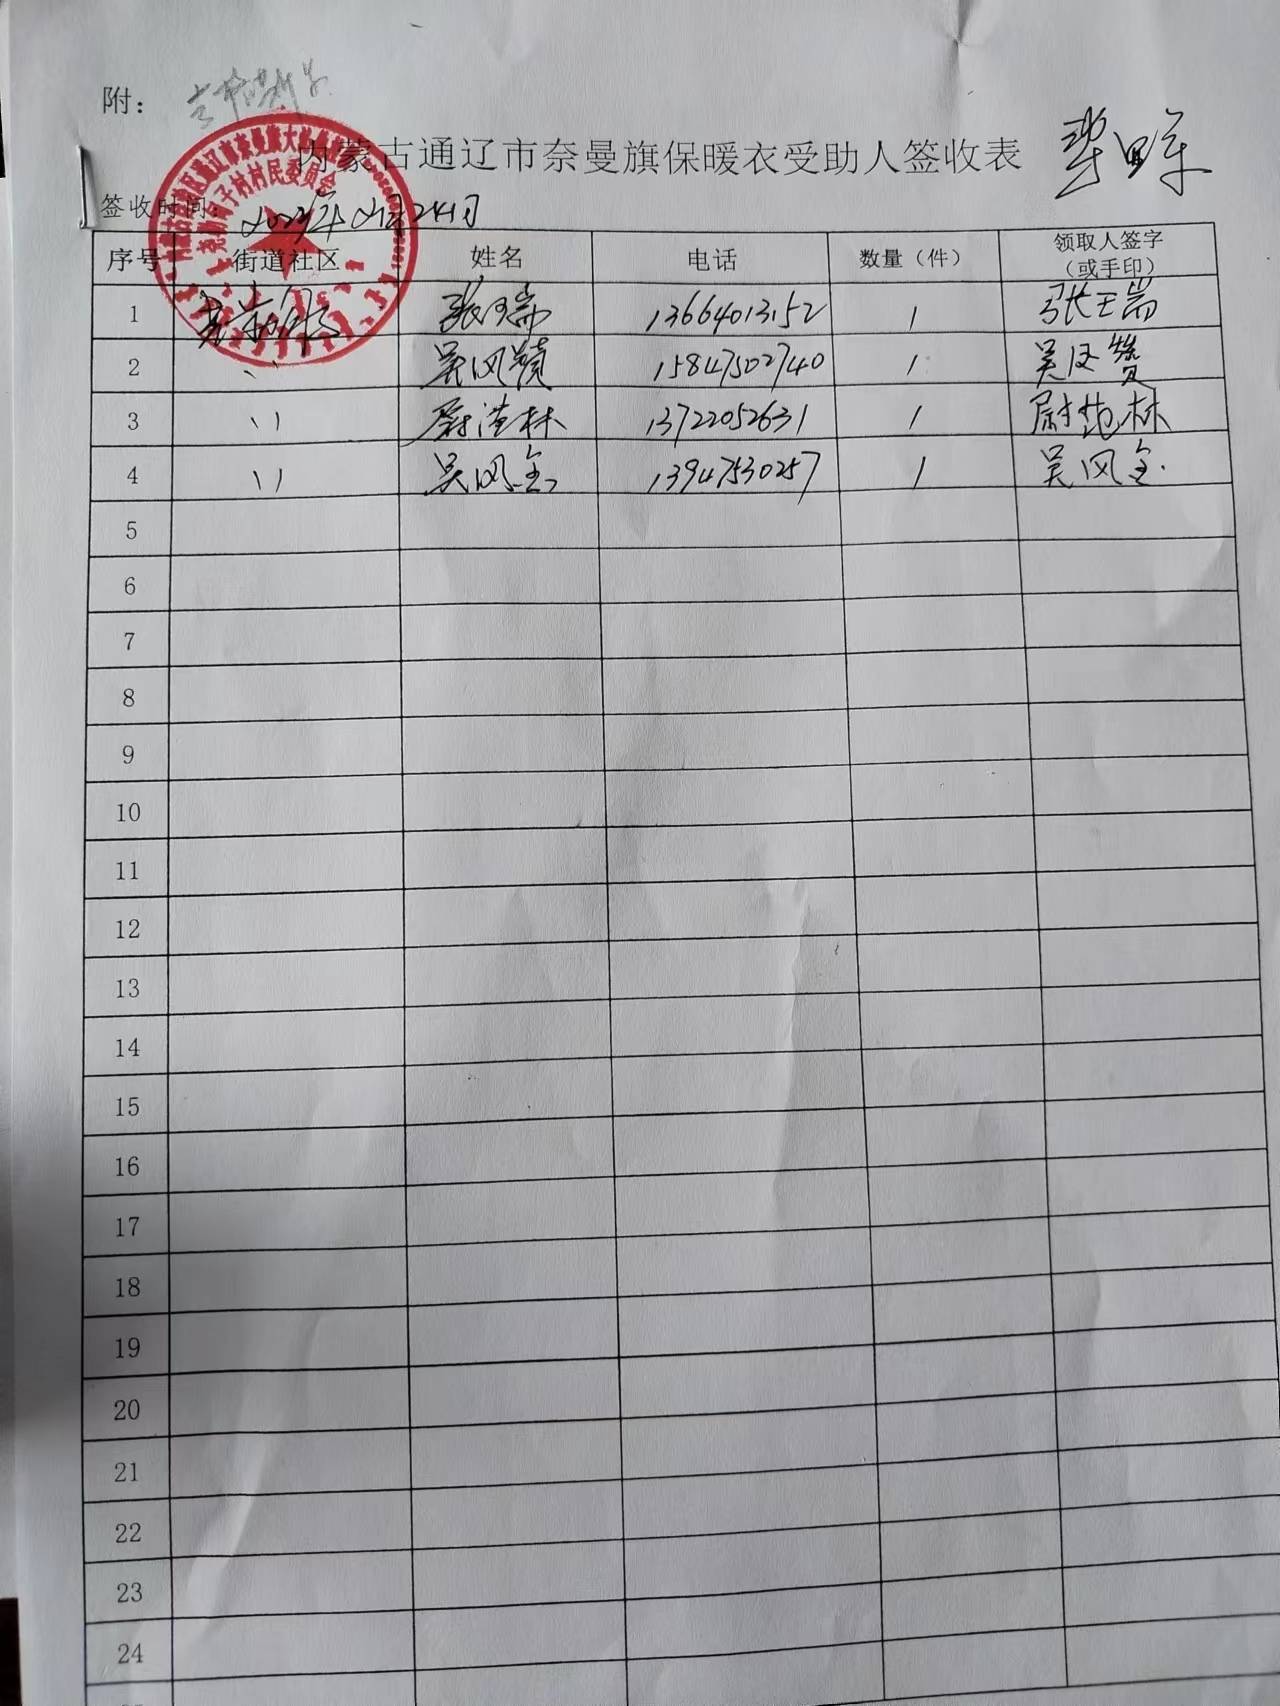 附：
内蒙古通辽市奈曼旗保暖衣受助人签收表
签收时间：
序号 街道社区 姓名 电话 数量（件） 领取人签字（或手印）
1 张瑞 13664013152 1 张玉瑞
2 〃 吴凤 15847502740 1 吴凤
3 〃 林 13722052631 1 尉 林
4 〃 吴凤金 13947530257 1 吴凤全
5
6
7
8
9
10
11
12
13
14
15
16
17
18
19
20
21
22
23
24
村村民委员会